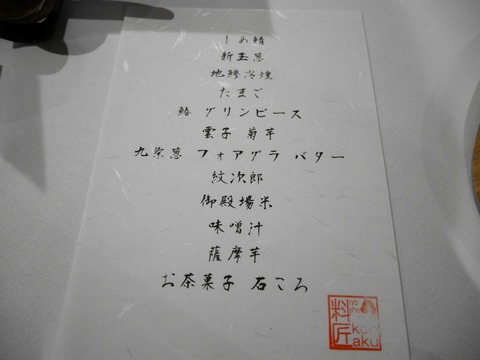 しめ鯖
新玉葱
地鰺冷燻
たまご
鰆 グリンピース
雲子 菊芋
九条葱 フォアグラ バター
紋次郎
御殿場米
味噌汁
薩摩芋
お茶菓子 石ころ
料匠